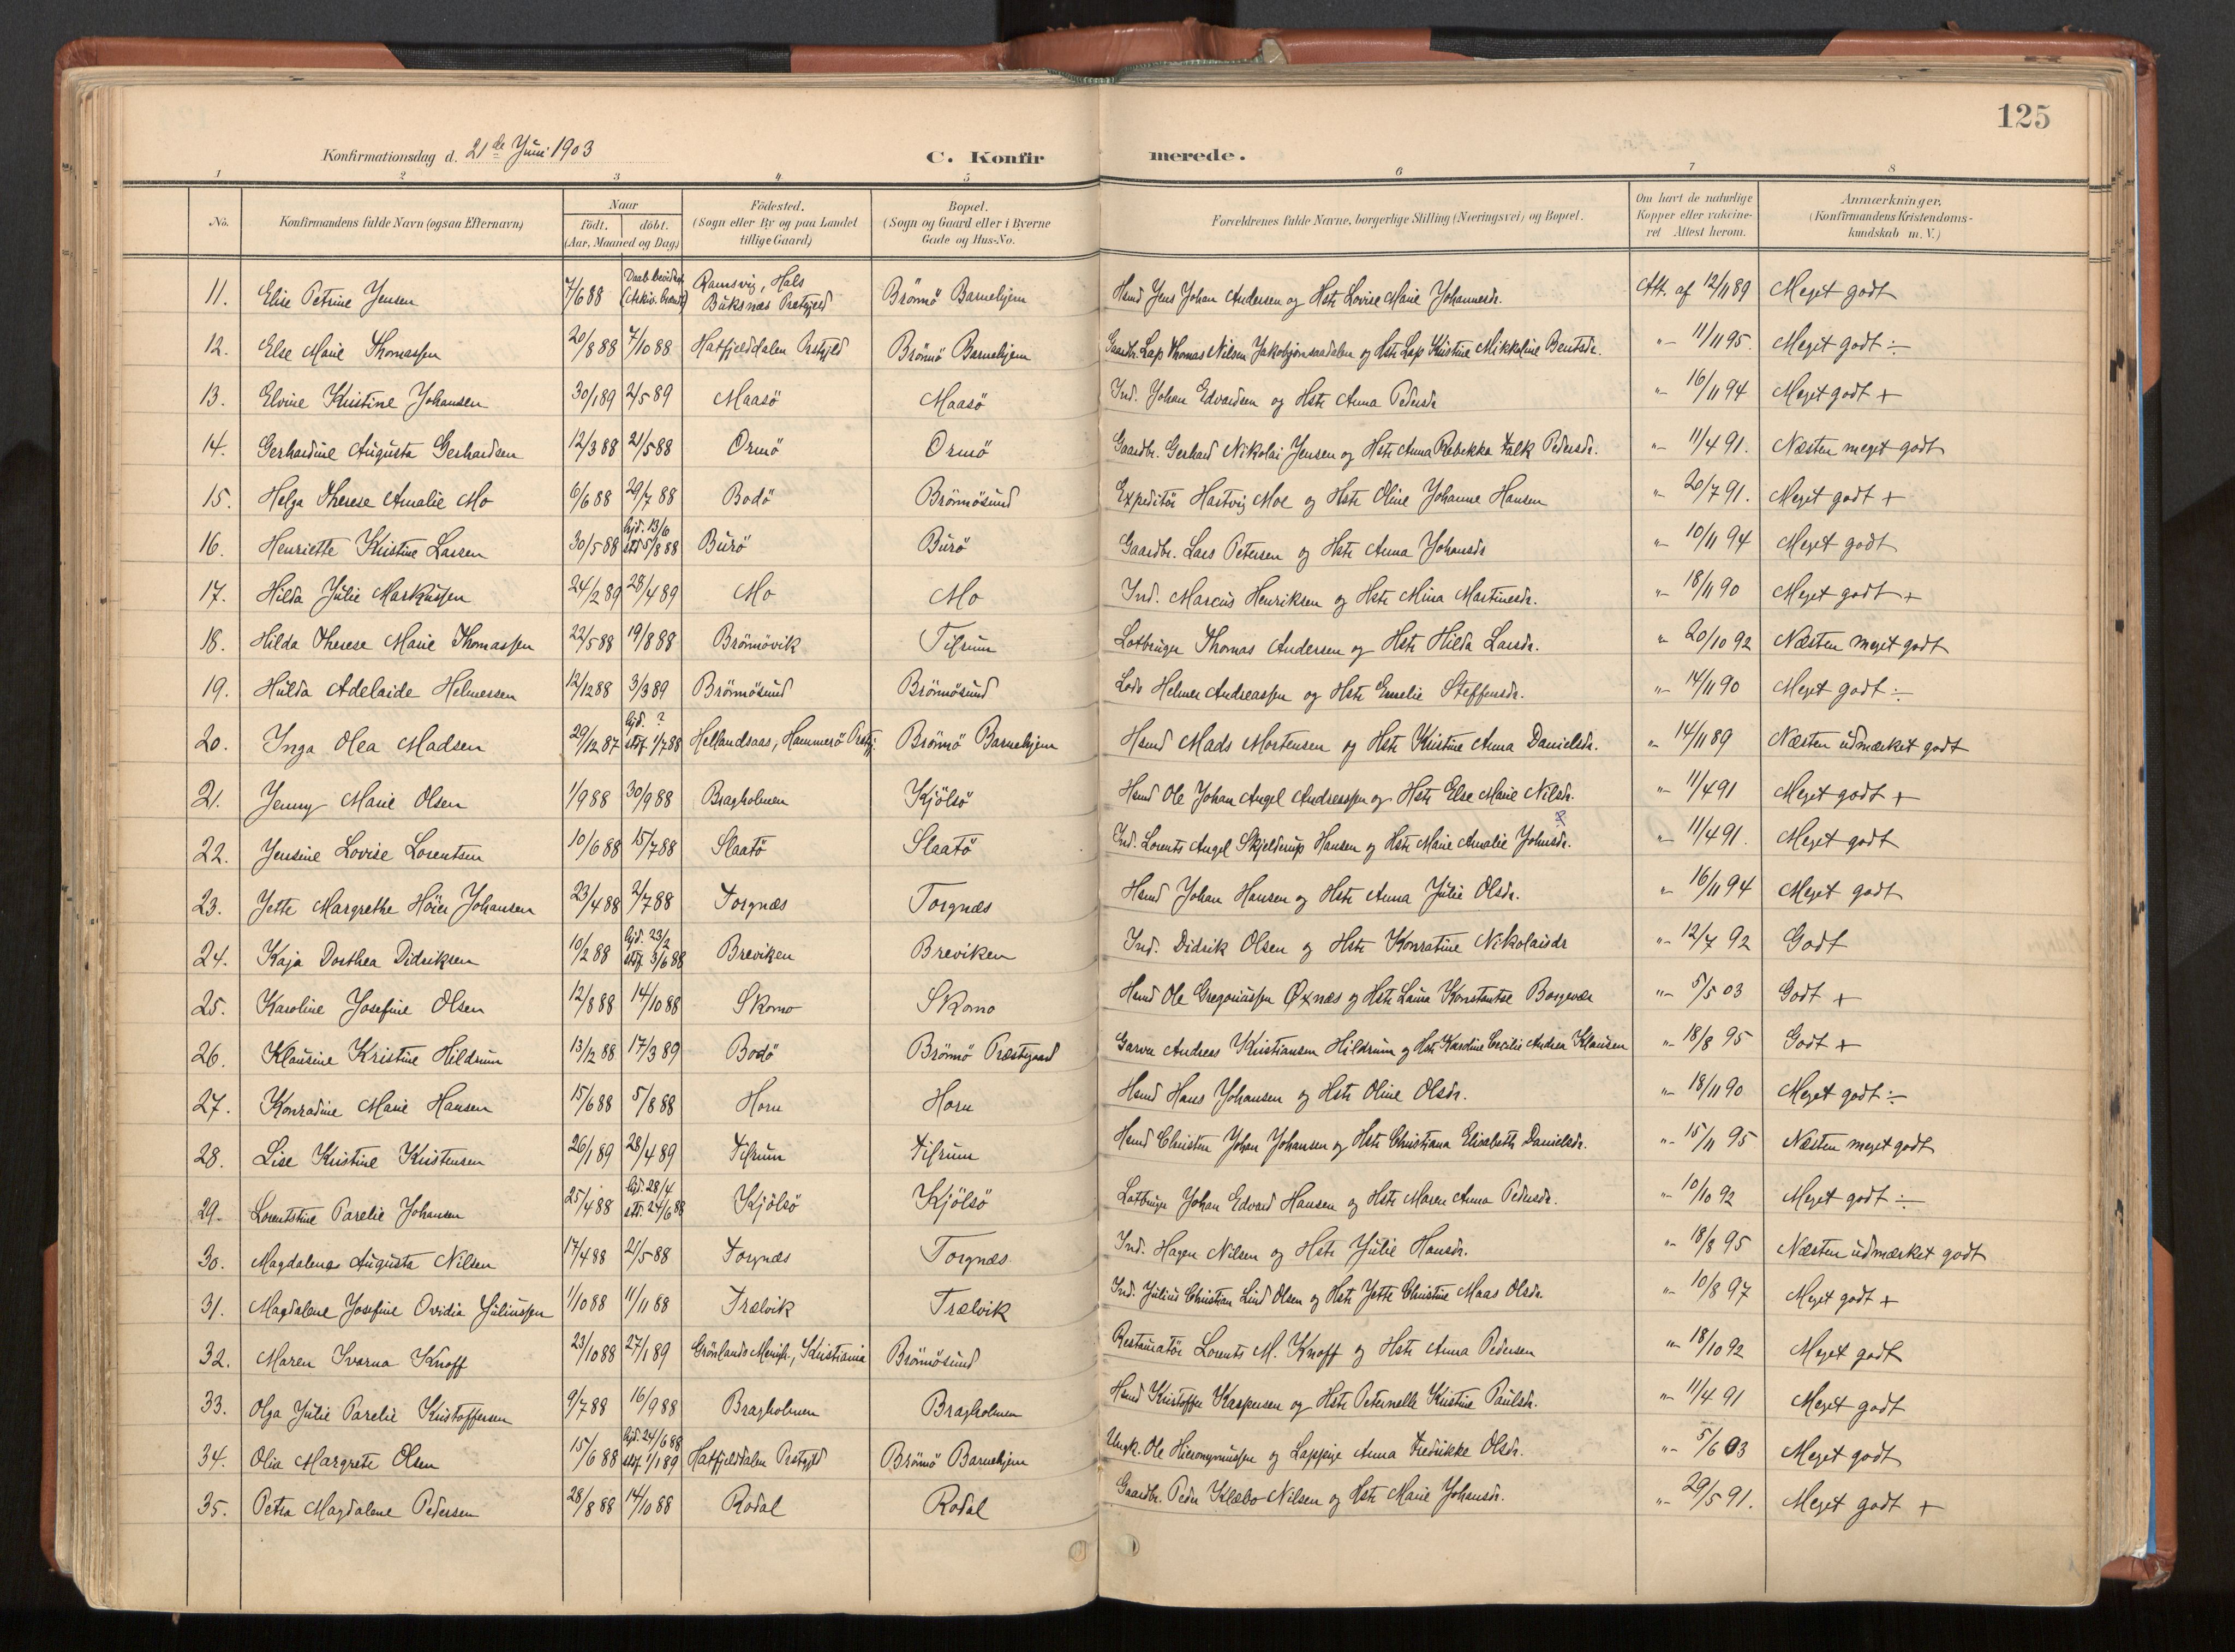 125
Konfirmationsdag d. 21de Juni 1903 C. Konfir merede.
1 2 3 4 5 6 7 8
No. Konfirmandens fulde Navn (ogsaa Efternavn) Naar født. døbt. (Aar, Maaned og Dag) Födested. (Sogn eller By og paa Landet tillige Gaard) Bopæl. (Sogn og Gaard eller i Byerne Gade og Hus-No. Forældrenes fulde Navne, borgerlige Stilling (Næringsvei) og Bopæl. Om havt de naturlige Kopper eller vakcineret Attest herom. Anmærkninger. (Konfirmandens Kristendomskundskab m. V.)
11. Elise Petrine Jensen 7/6 88 Ramsvig, Hals Buksnæs Prstgjeld Brönnö Barnehjem Hsmd Jens Johan Andersen og Hstr Lovise Marie Johannesdr. Att. af 12/11 89 Meget godt
12. Else Marie Thomassen 20/8 88 7/10 88 Hatfjelddalen Prstgjld Brönnö Barnehjem Gaardbr. Lap Thomas Nilsen og Hstr Lap Kristine Mikkeline Bentsdr. "- 11/11 95. Meget godt ÷
13. Elvine Kristine Johansen 30/1 89 2/5 89 Maasö Maasö Ind. Johan Edvardsen og Hstr Anna Pedersdr "- 16/11 94 Meget godt +
14. Gerhardine Augusta Gerhardsen 12/3 88 21/5 88 Ormö Ormö Gaardbr. Gerhard Nikolai Jensen og Hstr Anna Rebekka Falk Pedersdr. "- 11/4 91. Næsten meget godt
15. Helga Therese Amalie Mo 6/6 88 29/7 88 Bodö Brönnösund Expeditör Hartvig Moe og Hstr Oline Johanne Hansen "- 20/7 91. Meget godt +
16. Henriette Kristine Larsen 30/5 88 hjd. 13/6 stf 5/8 88 Burö Burö Gaardbr. Lars Petersen og Hstr Anna Johansdr "- 10/11 94 Meget godt
17. Hilda Julie Markussen 24/2 89 28/4 89 Mo Mo Ind. Marcus Henriksen og Hstr Mina Martinesdr. "- 18/11 90 Meget godt +
18. Hilda Therese Marie Thomassen 22/5 88 19/8 88 Brönnövik Tilrum Lotbruger Thomas Andersen og Hstr Hilda Larsdr. "- 20/10 92 Næsten meget godt
19. Hulda Adelaide Helmersen 12/12 88 3/3 89 Brönnösund Brönnösund Lods Helmer Andreassen og Hstr Emelie Steffensdr. "- 14/11 90 Meget godt ÷
20. Inga Olea Madsen 29/12 87 hjd. ? stf. 1/7 88 Hellandsaas, Hammerö Prstgj. Brönnö Barnehjem Hsmd Mads Mortensen og Hstr Kristine Anna Danielsdr. "- 14/11 89 Næsten udmærket godt
21. Jenny Marie Olsen 1/9 88 30/9 88 Bragholmen Kjölsö Hsmd Ole Johan Angel Andreassen og Hstr Else Marie Nilsdr. "- 11/4 91 Meget godt +
22. Jensine Lovise Lorentsen 10/6 88 15/7 88 Slaatö Slaatö Ind. Lorents Angel Skjelderup Hansen og Hstr Marie Amalie Johnsdr. "- 11/4 91. Meget godt
23. Jette Margrethe Höier Johansen 23/4 88 2/7 88 Torgnæs Torgnæs Hsmd Johan Hansen og Hstr Anna Julie Olsdr. "- 16/11 94 Meget godt
24. Kaja Dorthea Didriksen 10/2 88 hjd. 23/2 stf. 3/6 88 Breviken Breviken Ind. Didrik Olsen og Hstr Konratine Nikolaisdr "- 12/7 92 Godt
25. Karoline Josefine Olsen 12/8 88 14/10 88 Skomo Skomo Hsmd Ole Gregoriussen Øxnæs og Hstr Laura Konstantse Borgevær "- 5/5 03 Godt +
26. Klausine Kristine Hildrum 13/12 88 17/3 89 Bodö Brönnö Præstegaard Garver Andreas Kristiansen Hildrum og Hstr Karoline Cecilie Andrea Klausen "- 18/8 95 Godt +
27. Konradine Marie Hansen 15/6 88 5/8 88 Horn Horn Hsmd Hans Johansen og Hstr Oline Olsdr. "- 18/11 90 Meget godt ÷
28. Lise Kristine Kristensen 26/1 89 28/4 89 Tilrum Tilrum Hsmd Christen Johan Johansen og Hstr Christiana Elisabeth Danielsdr. "- 15/11 95 Næsten meget godt
29. Lorentstine Parelie Johansen 25/4 88 hjd. 28/4 stf. 24/6 88 Kjölsö Kjölsö Lotbruger Johan Edvard Hansen og Hstr Maren Anna Pedersdr. "- 10/10 92 Meget godt ÷
30. Magdalena Augusta Nilsen 17/4 88 21/5 88 Torgnæs Torgnæs Ind. Hagen Nilsen og Hstr Julie Hansdr. "- 18/8 95 Næsten udmærket godt
31. Magdalene Josefine Ovidia Juliussen 1/10 88 11/11 88 Trælvik Trælvik Ind. Julius Christian Lind Olsen og Hstr Jette Christine Maas Olsdr. "- 10/8 97 Meget godt +
32. Maren Ivarna Knoff 23/10 88 27/1 89 Grönlands Menigh., Kristiania Brönnösund Restauratör Lorents M. Knoff og Hstr Anna Pedersen "- 18/10 92 Meget godt
33. Olga Julie Parelie Kristoffersen 9/7 88 16/9 88 Bragholmen Bragholmen Hsmd Kristoffer Kaspersen og Hstr Peternelle Kristine Paulsdr. "- 11/4 91 Meget godt
34. Olia Margrete Olsen 15/6 88 hjd. 24/6 88 stf. 1/1 89 Hatfjelddalen Prstgjld Brönnö Barnehjem Ungk. Ole Hieronymussen og Lappige Anna Fredrikke Olsdr. "- 5/6 03 Meget godt
35. Petra Magdalene Pedersen 28/8 88 14/10 88 Rodal Rodal Gaardbr. Peder Klæbo Nilsen og Hstr Marie Johansdr. "- 29/5 91. Meget godt +